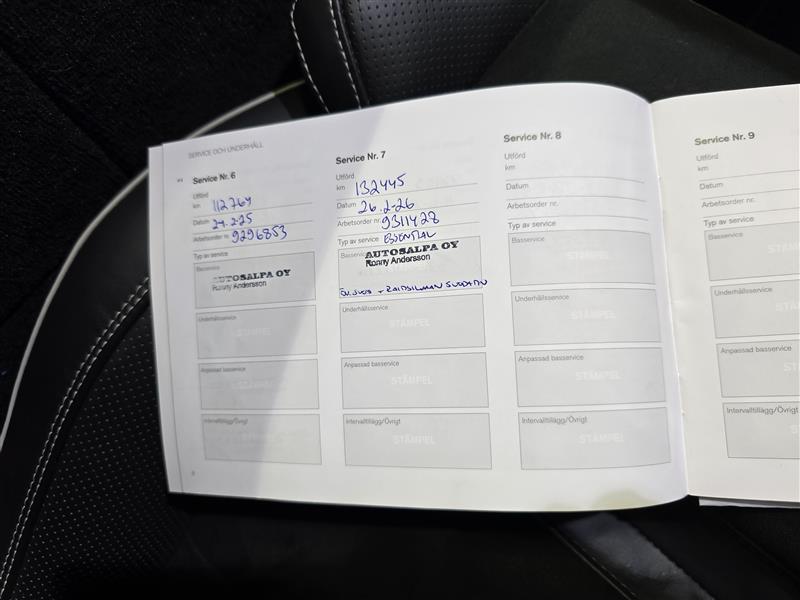 SERVICE OCH UNDERHÅLL
Service Nr. 6
Utförd
km 112769
Datum 27.2-25
Arbetsorder nr. 9296853
Typ av service
Basservice
AUTOSALPA OY
Ronny Andersson
Underhållsservice
Anpassad basservice
Intervalltillägg/Övrigt
8
Service Nr. 7
Utförd
km 132445
Datum 26.2-26
Arbetsorder nr. 9311428
Typ av service ESSENTIAL
Basservice
AUTOSALPA OY
Ronny Andersson
Underhållsservice
STÄMPEL
Anpassad basservice
STÄMPEL
Intervalltillägg/Övrigt
STÄMPEL
Service Nr. 8
Utförd
km
Datum
Arbetsorder nr.
Typ av service
Basservice
STÄMPEL
Underhållsservice
STÄMPEL
Anpassad basservice
STÄMPEL
Intervalltillägg/Övrigt
STÄMPEL
Service Nr. 9
Utförd
km
Datum
Arbetsorder nr.
Typ av service
Basservice
Underhållsservice
Anpassad basservice
Intervalltillägg/Övrigt